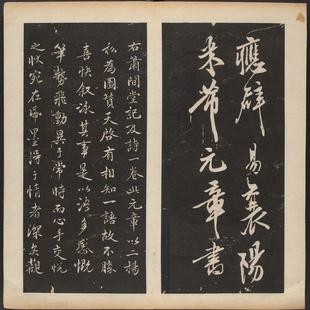 應辟 易襄陽
米芾元章書
右蕭閒堂記及詩一卷此元章以二楊
私為圖贊天啟有相知一語故不勝
喜快叙詠其事是以語多感慨
筆勢飛動異于常時而心手交悅
之狀宛在縑墨深于情者深矣觀